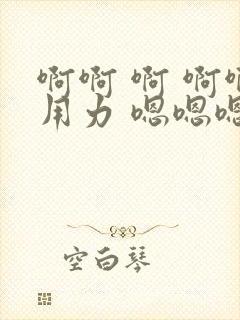 啊啊 啊 啊啊
用力 嗯嗯嗯
空白琴